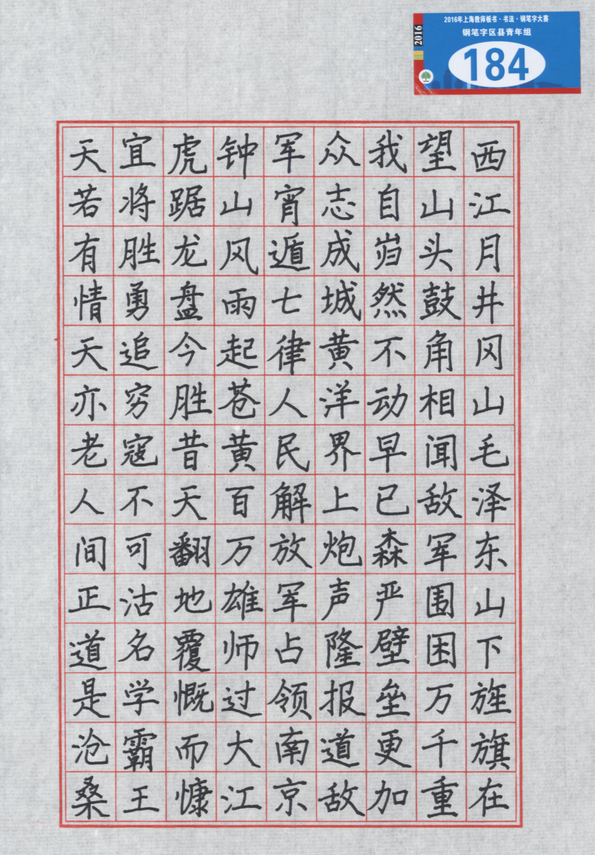 2016
2016年上海教师板书·书法·钢笔字大赛
钢笔字区县青年组
184
西江月井冈山毛泽东山下旌旗在
望山头鼓角相闻敌军围困万千重
我自岿然不动早已森严壁垒更加
众志成城黄洋界上炮声隆报道敌
军宵遁七律人民解放军占领南京
钟山风雨起苍黄百万雄师过大江
虎踞龙盘今胜昔天翻地覆慨而慷
宜将胜勇追穷寇不可沽名学霸王
天若有情天亦老人间正道是沧桑